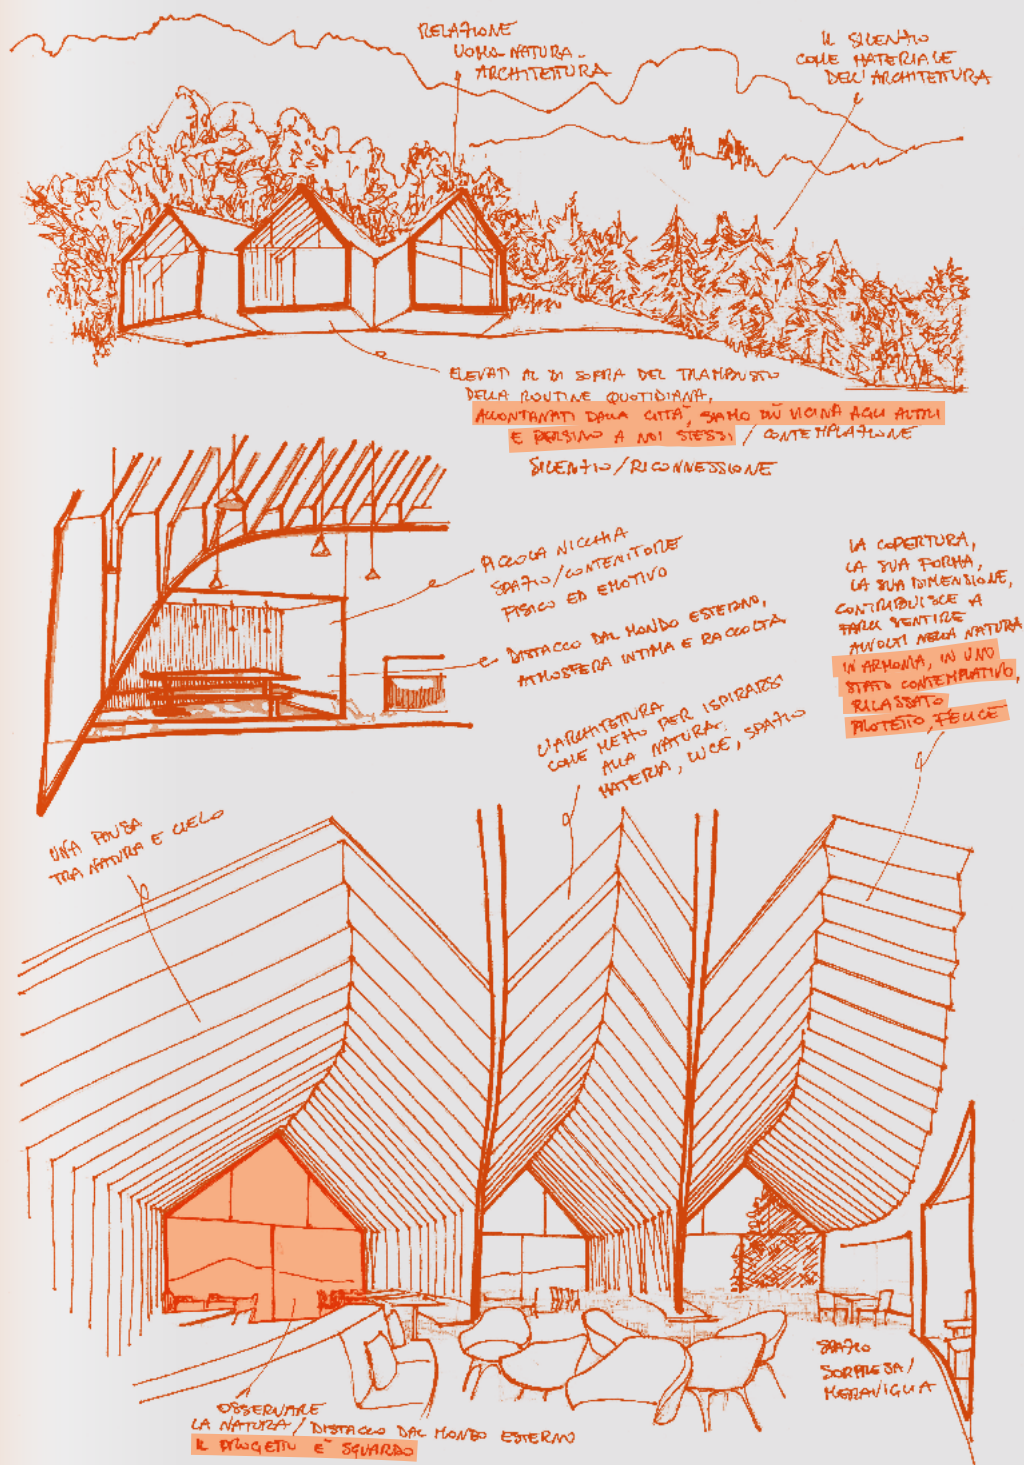 RELAZIONE
UOMO-NATURA-
ARCHITETTURA
IL SILENZIO
COME MATERIALE
DELL'ARCHITETTURA
ELEVATI AL DI SOPRA DEL TRAMBUSTO
DELLA ROUTINE QUOTIDIANA,
ALLONTANATI DALLA CITTÀ, SIAMO PIÙ VICINI AGLI ALTRI
E PERSINO A NOI STESSI / CONTEMPLAZIONE
SILENZIO/RICONNESSIONE
PICCOLA NICCHIA
SPAZIO/CONTENITORE
FISICO ED EMOTIVO
DISTACCO DAL MONDO ESTERNO,
ATMOSFERA INTIMA E RACCOLTA
LA COPERTURA,
LA SUA FORMA,
LA SUA DIMENSIONE,
CONTRIBUISCE A
FARCI SENTIRE
AVVOLTI NELLA NATURA
IN ARMONIA, IN UNO
STATO CONTEMPLATIVO,
RILASSATO
PROTETTO, FELICE
L'ARCHITETTURA
COME MEZZO PER ISPIRARSI
ALLA NATURA:
MATERIA, LUCE, SPAZIO
UNA PAUSA
TRA NATURA E CIELO
SPAZIO
SORPRESA/
MERAVIGLIA
OSSERVARE
LA NATURA / DISTACCO DAL MONDO ESTERNO
IL PROGETTO È SGUARDO